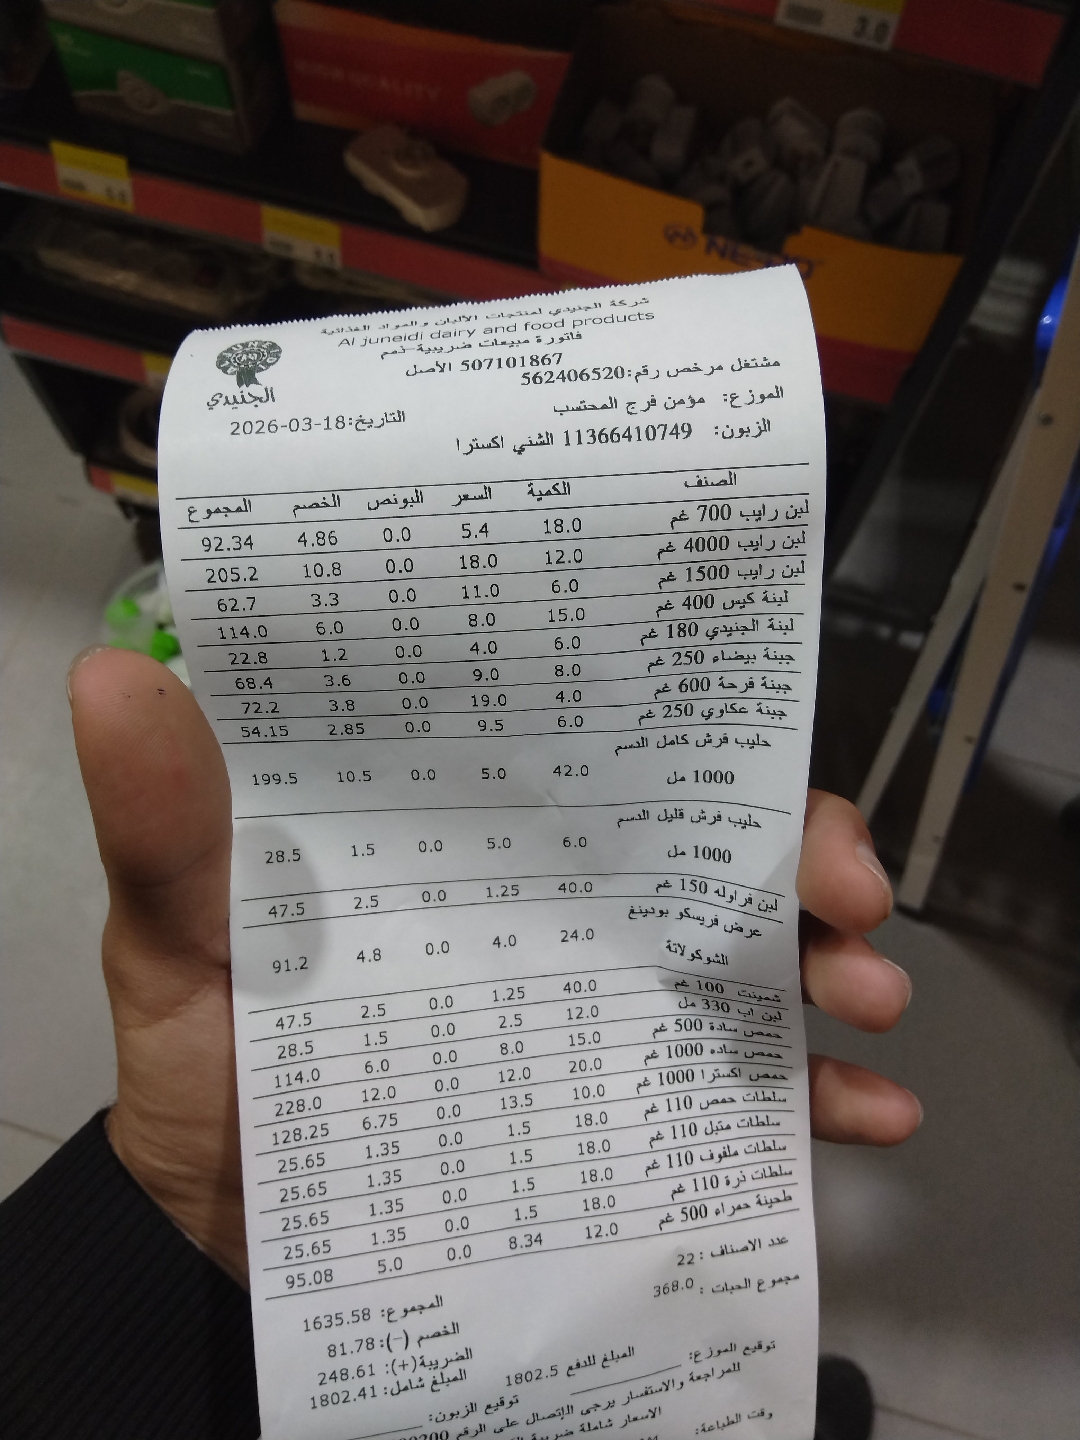 3.0
QUALITY
شركة الجنيدي لمنتجات الألبان والمواد الغذائية
Al juneidi dairy and food products
فاتورة مبيعات ضريبية-ذمم
507101867 الأصل
مشتغل مرخص رقم:562406520
الجنيدي
الموزع: مؤمن فرج المحتسب
التاريخ:18-03-2026
الزبون: 11366410749 الشني اكسترا
الصنف الكمية السعر البونص الخصم المجموع
لبن رايب 700 غم 18.0 5.4 0.0 4.86 92.34
لبن رايب 4000 غم 12.0 18.0 0.0 10.8 205.2
لبن رايب 1500 غم 6.0 11.0 0.0 3.3 62.7
لبنة كيس 400 غم 15.0 8.0 0.0 6.0 114.0
لبنة الجنيدي 180 غم 6.0 4.0 0.0 1.2 22.8
جبنة بيضاء 250 غم 8.0 9.0 0.0 3.6 68.4
جبنة فرحة 600 غم 4.0 19.0 0.0 3.8 72.2
جبنة عكاوي 250 غم 6.0 9.5 0.0 2.85 54.15
حليب فرش كامل الدسم
1000 مل 42.0 5.0 0.0 10.5 199.5
حليب فرش قليل الدسم
1000 مل 6.0 5.0 0.0 1.5 28.5
لبن فراوله 150 غم 40.0 1.25 0.0 2.5 47.5
عرض فريسكو بودينغ
الشوكولاتة 24.0 4.0 0.0 4.8 91.2
شمينت 100 غم 40.0 1.25 0.0 2.5 47.5
لبن اب 330 مل 12.0 2.5 0.0 1.5 28.5
حمص سادة 500 غم 15.0 8.0 0.0 6.0 114.0
حمص ساده 1000 غم 20.0 12.0 0.0 12.0 228.0
حمص اكسترا 1000 غم 10.0 13.5 0.0 6.75 128.25
سلطات حمص 110 غم 18.0 1.5 0.0 1.35 25.65
سلطات متبل 110 غم 18.0 1.5 0.0 1.35 25.65
سلطات ملفوف 110 غم 18.0 1.5 0.0 1.35 25.65
سلطات ذرة 110 غم 18.0 1.5 0.0 1.35 25.65
طحينة حمراء 500 غم 12.0 8.34 0.0 5.0 95.08
عدد الاصناف : 22
مجموع الحبات : 368.0
المجموع: 1635.58
الخصم (-): 81.78
الضريبة(+): 248.61
المبلغ شامل: 1802.41
المبلغ للدفع 1802.5
توقيع الموزع:
توقيع الزبون:
للمراجعة والاستفسار يرجى الإتصال على الرقم
الاسعار شاملة ضريبة
وقت الطباعة: